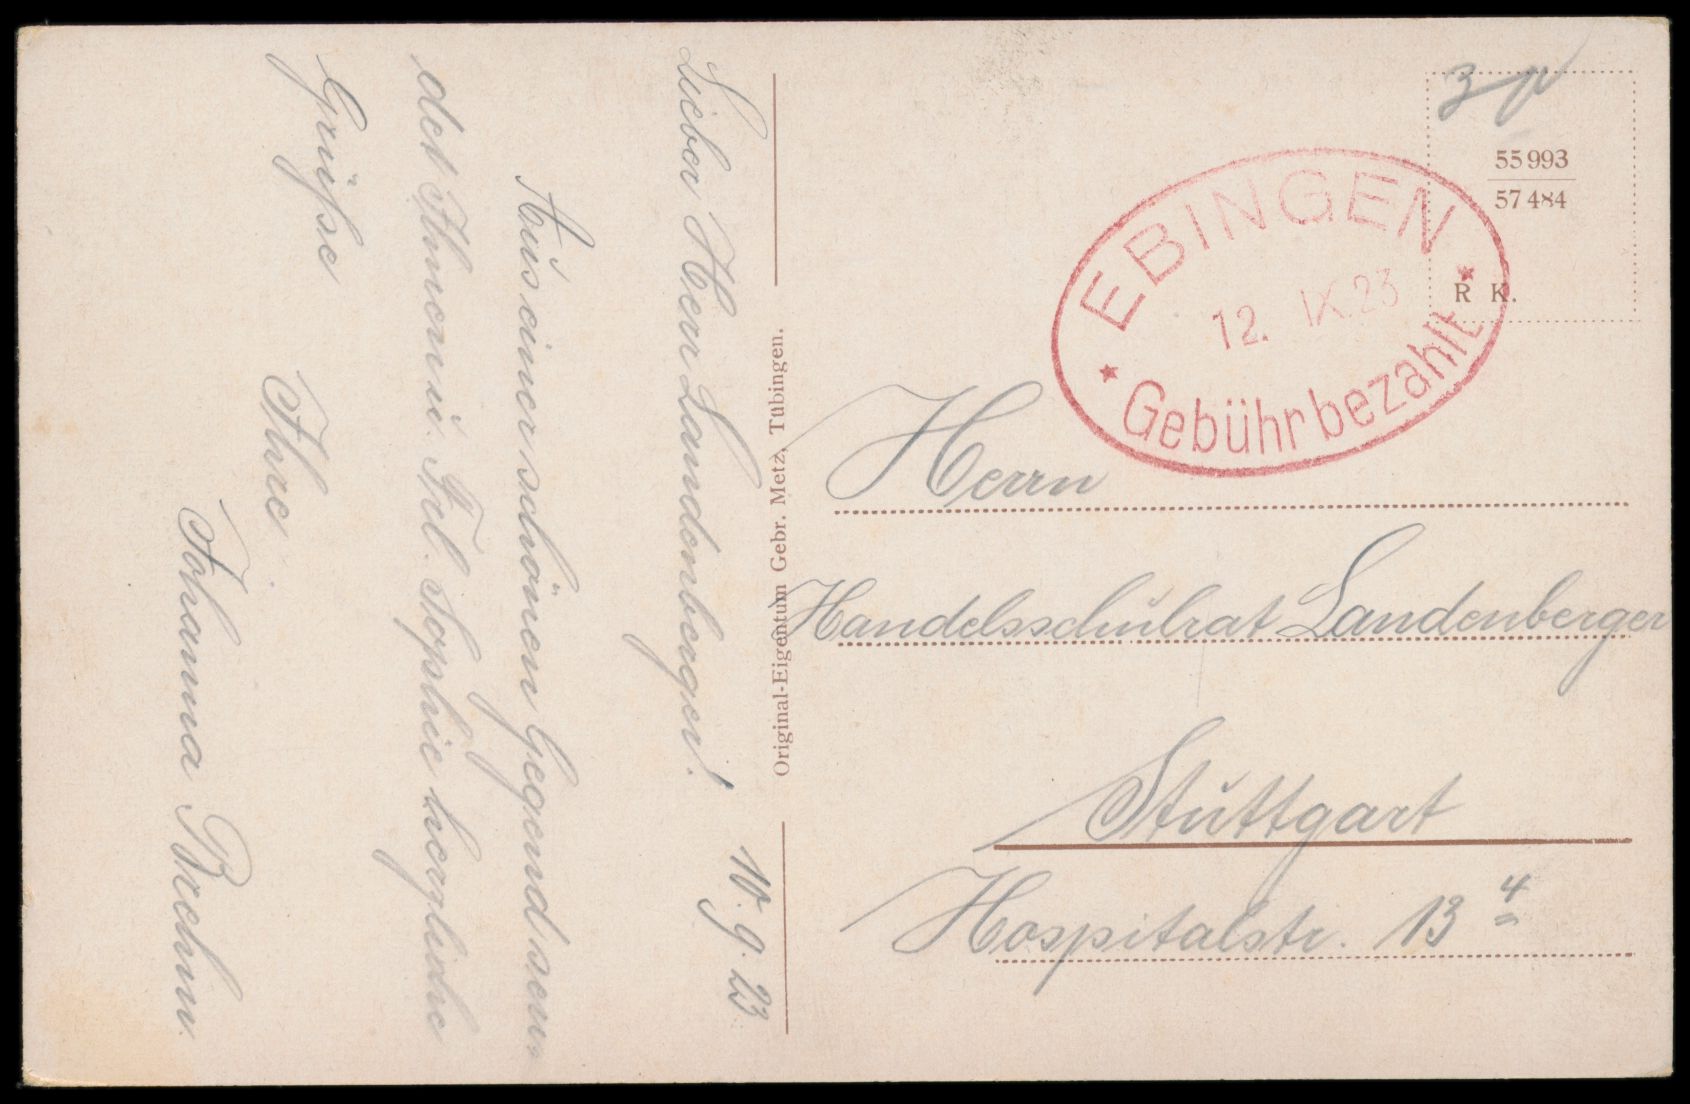 10. 9. 23
Lieber Herr Landenberger!
Aus einer schönen Gegend sen-
det Ihnen u. Frl. Sophie herzliche
Grüsse
Ihre
Johanna
Original-Eigentum Gebr. Metz, Tübingen.
3
55 993
57 484
R. K.
EBINGEN
12. IX. 23
Gebühr bezahlt
Herrn
Handelsschulrat Landenberger
Stuttgart
Hospitalstr. 13 4